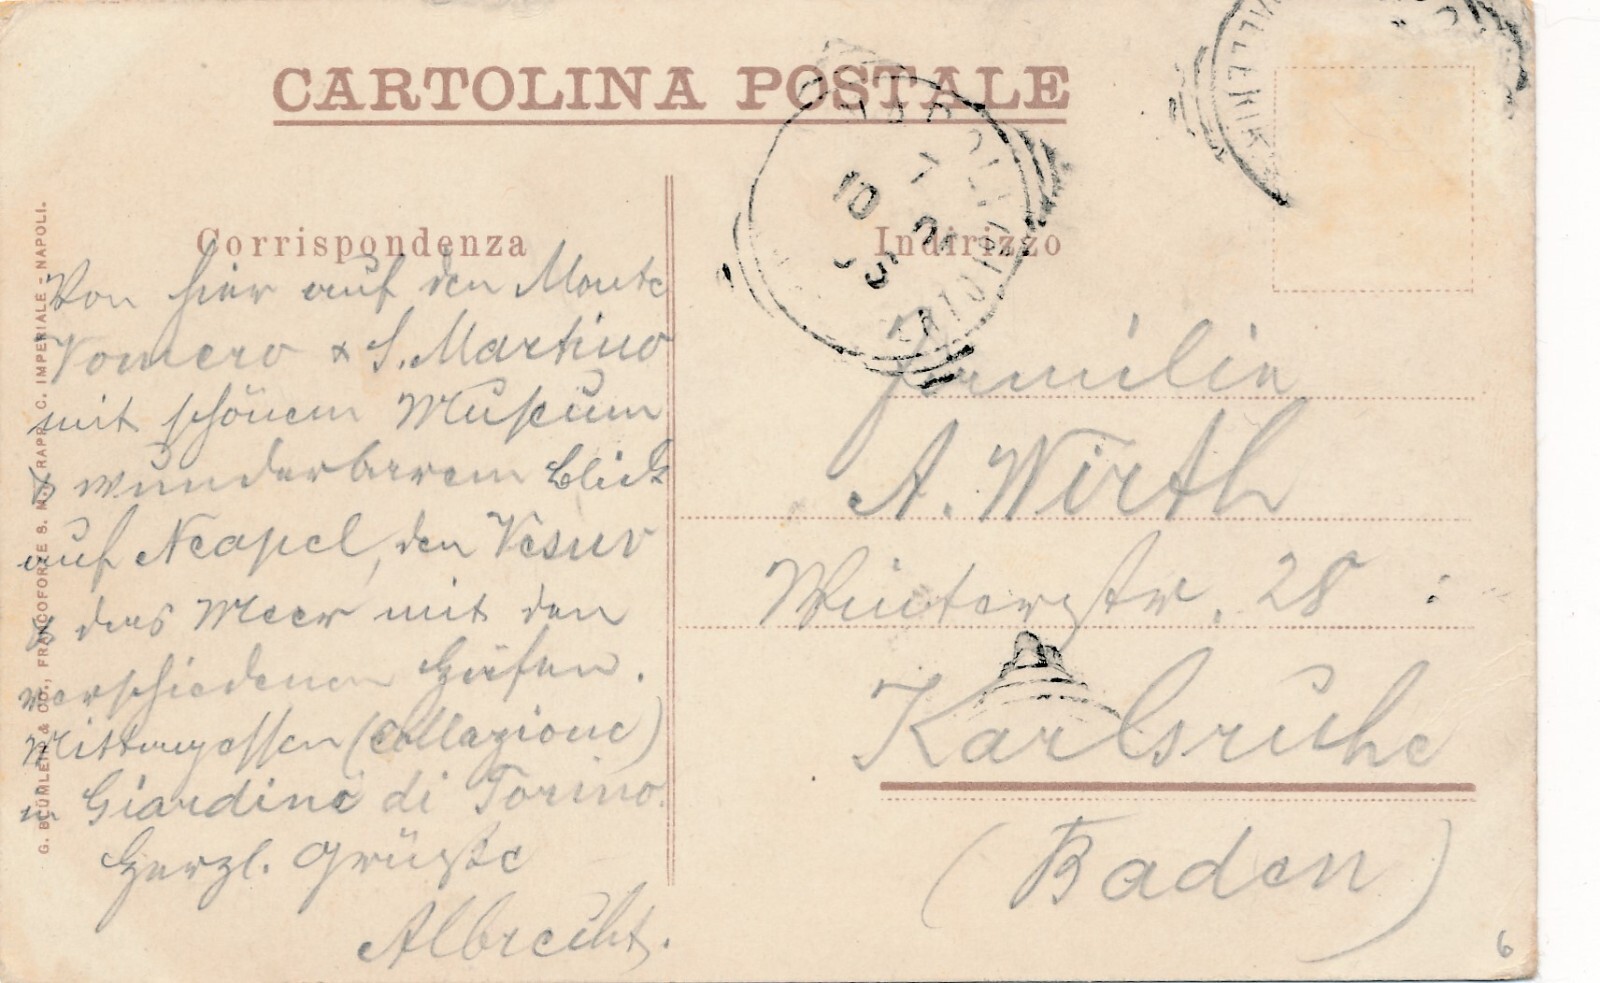 CARTOLINA POSTALE
Corrispondenza
Von hier auf den Monte
Vomero & S. Martino
mit schönem Museum
& wunderbarem Blick
auf Neapel, den Vesuv
& das Meer mit den
verschiedenen Häfen.
Mittagessen (collazione)
in Giardino di Torino.
Herzl. Grüsse
Albrecht.
G. BÜMLEIN & CO., FRANCOFORTE S. M. RAPP. C. IMPERIALE - NAPOLI.
Indirizzo
Familie
A. Wirth
Winterstr. 28
Karlsruhe
(Baden)
10
7
6